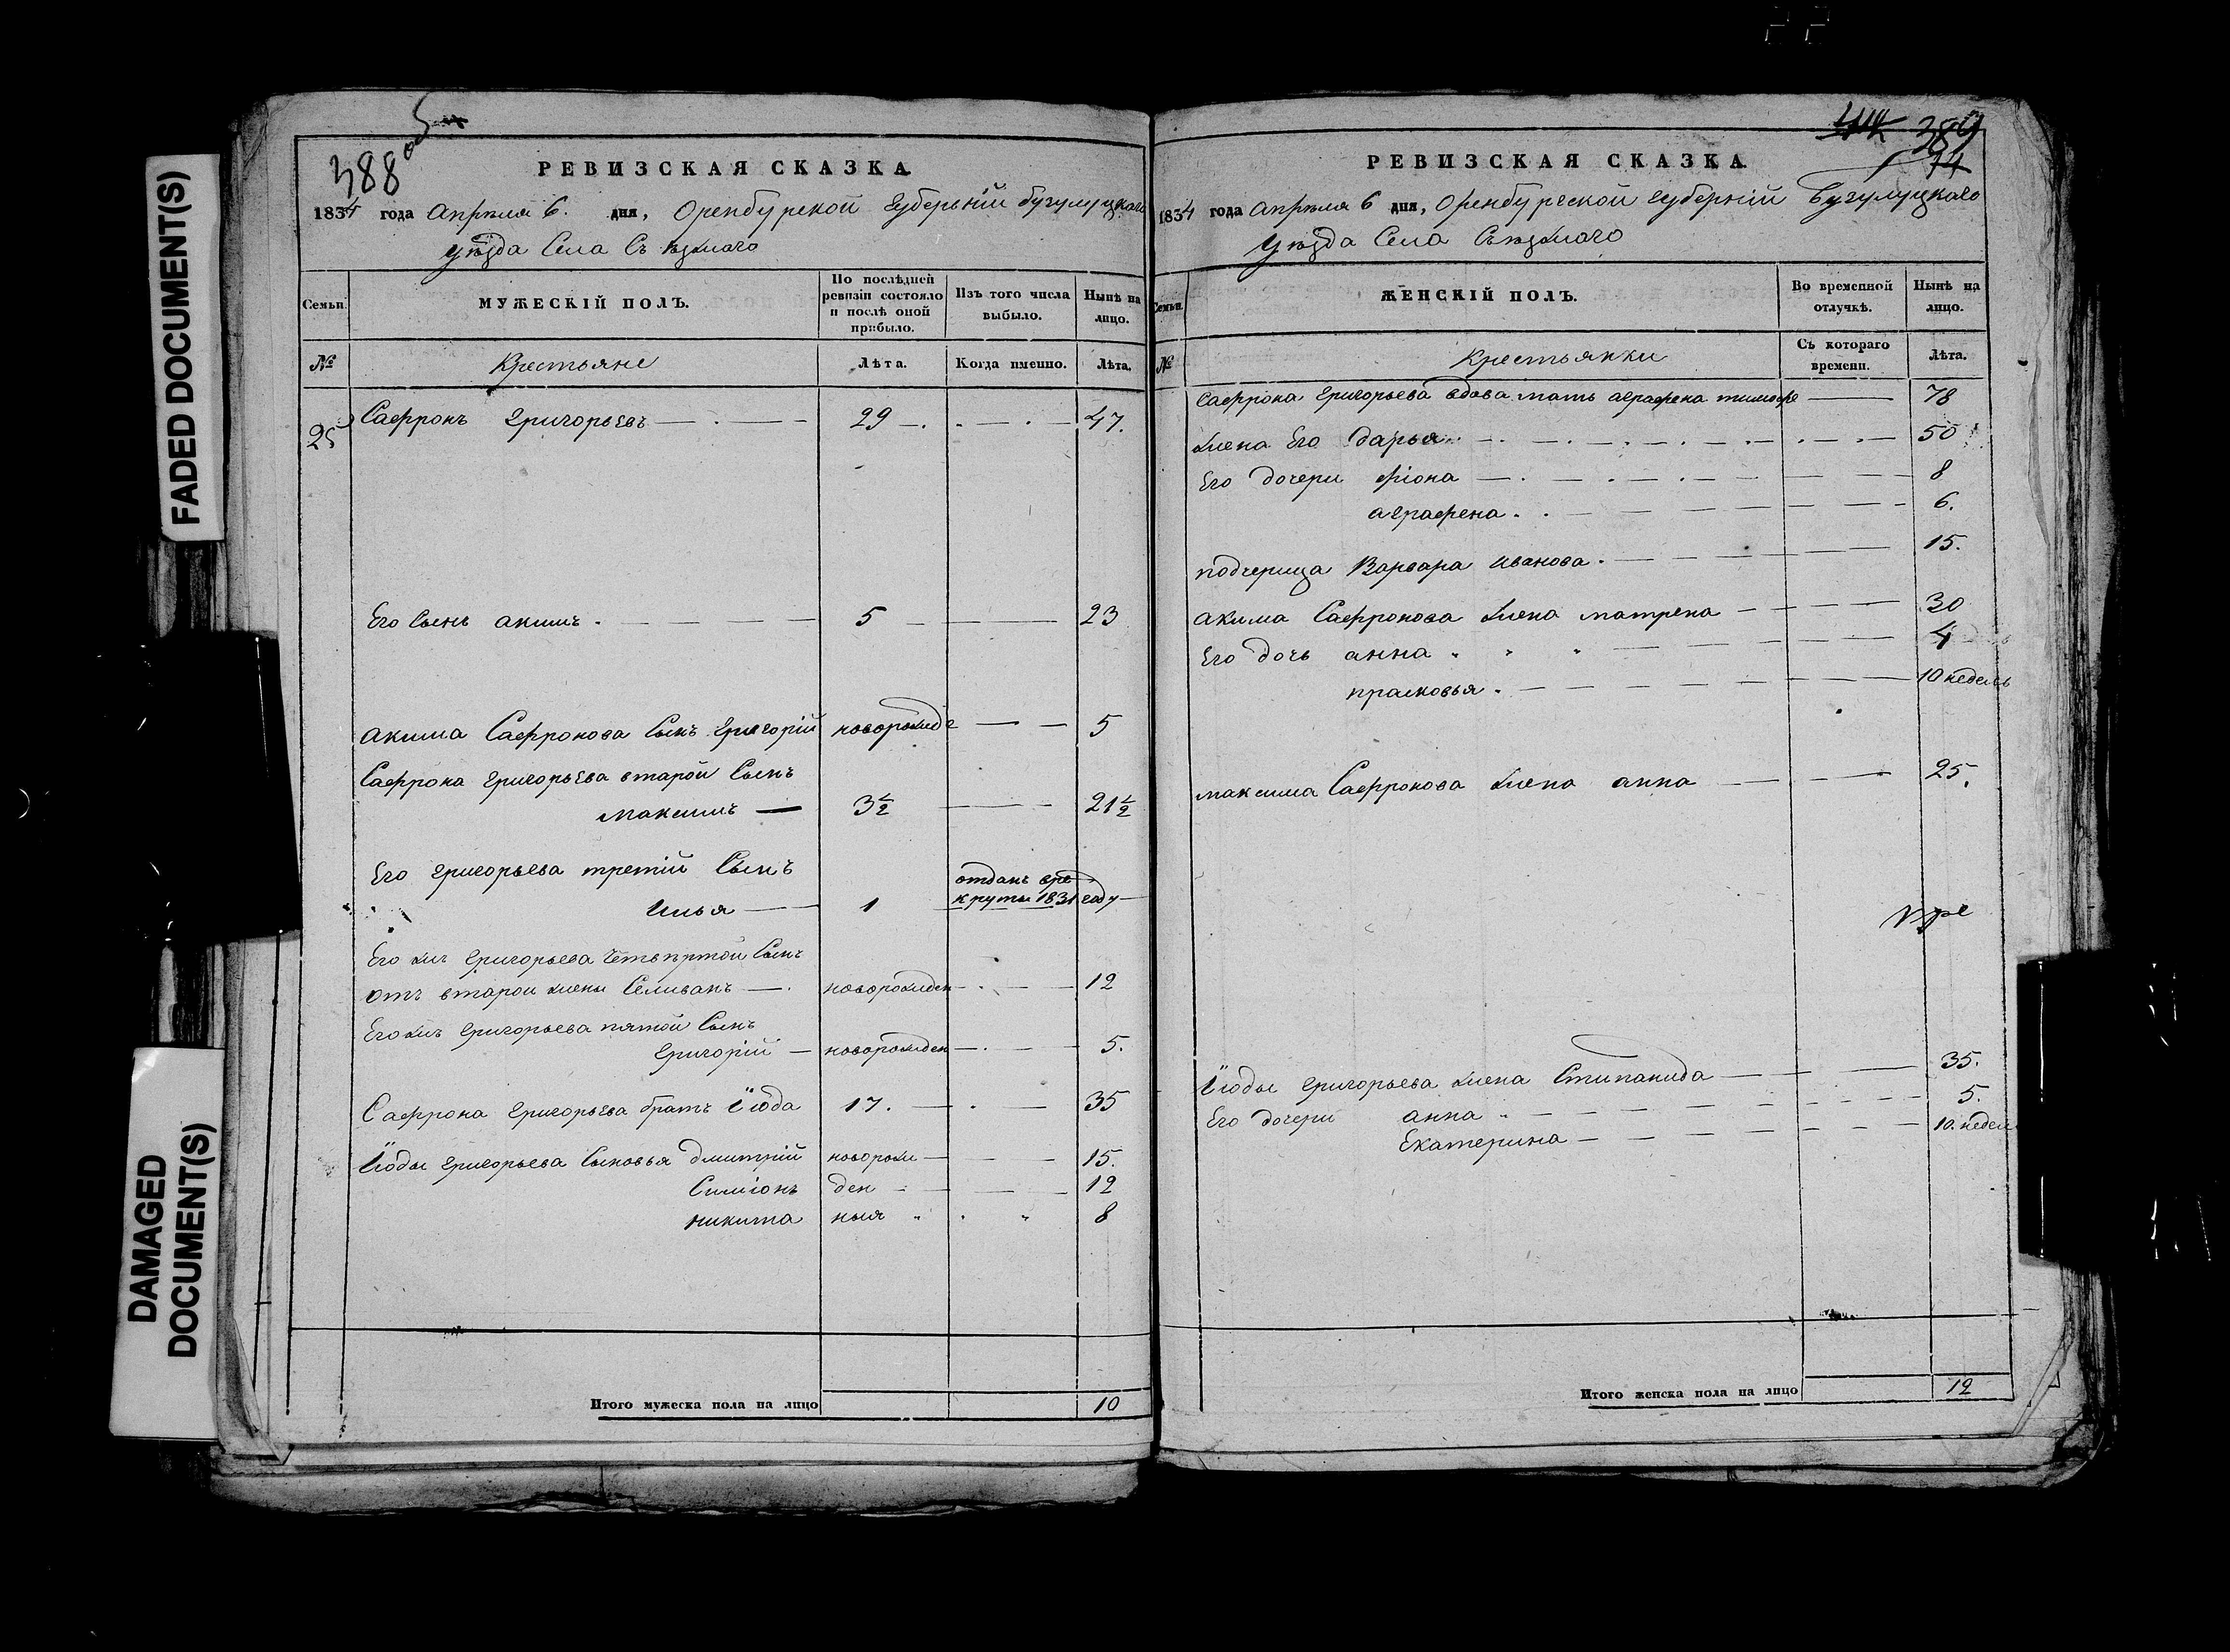 FADED DOCUMENT(S)
DAMAGED DOCUMENT(S)
388 об
РЕВИЗСКАЯ СКАЗКА
1834 года Апреля 6. дня, Оренбурской Губерьнiй бузулуцкаго
Уѣзда Села Съѣзжаго
Семьи. МУЖЕСКIЙ ПОЛЪ. По послѣдней ревизiи состояло и послѣ оной прибыло. Изъ того числа выбыло. Нынѣ на лицо.
№ Крестьяне Лѣта. Когда именно. Лѣта.
25 Сафронъ Григорьевъ 29 47.
Его Сынъ акимъ. 5 23
акима Сафронова Сынъ Григорiй новорожде 5
Сафрона Григорьева второй Сынъ
максимъ 3½ 21½
Его Григорьева третiй Сынъ
Илья 1 отданъ вре
круты 1831 году
Его жъ Григорьева Четьвѣртой Сынъ
отъ второи жены Селиванъ новорожден 12
Его жъ Григорьева пятой Сынъ
Григорiй новорожден 5.
Сафрона Григорьева братъ Iюда 17. 35
Iюды Григорьева Сыновья дмитрiй новорож 15.
Симiонъ ден 12
никита ныя 8
Итого мужеска пола на лицо 10
389
74
РЕВИЗСКАЯ СКАЗКА
1834 года Апреля 6 дня, Оренбурской Губернiй Бузулуцкаго
Уѣзда Села Съѣзжаго
Семьи. ЖЕНСКIЙ ПОЛЪ. Во временной отлучкѣ. Нынѣ на лицо.
№ Крестьянки Съ котораго времени. Лѣта.
Сафрона Григорьева вдова мать аграфена тимофе 78
жена Его дарья 50
Его дочери фiона 8
аграфена. 6.
подчерица Варвара иванова. 15.
акима Сафронова жена матрена 30
Его дочь анна 4
прасковья. 10 недель
максима Сафронова жена анна 25.
Iюды Григорьева жена Стипанида 35.
Его дочери анна 5.
Екатерина 10. недел
Итого женска пола на лицо 12